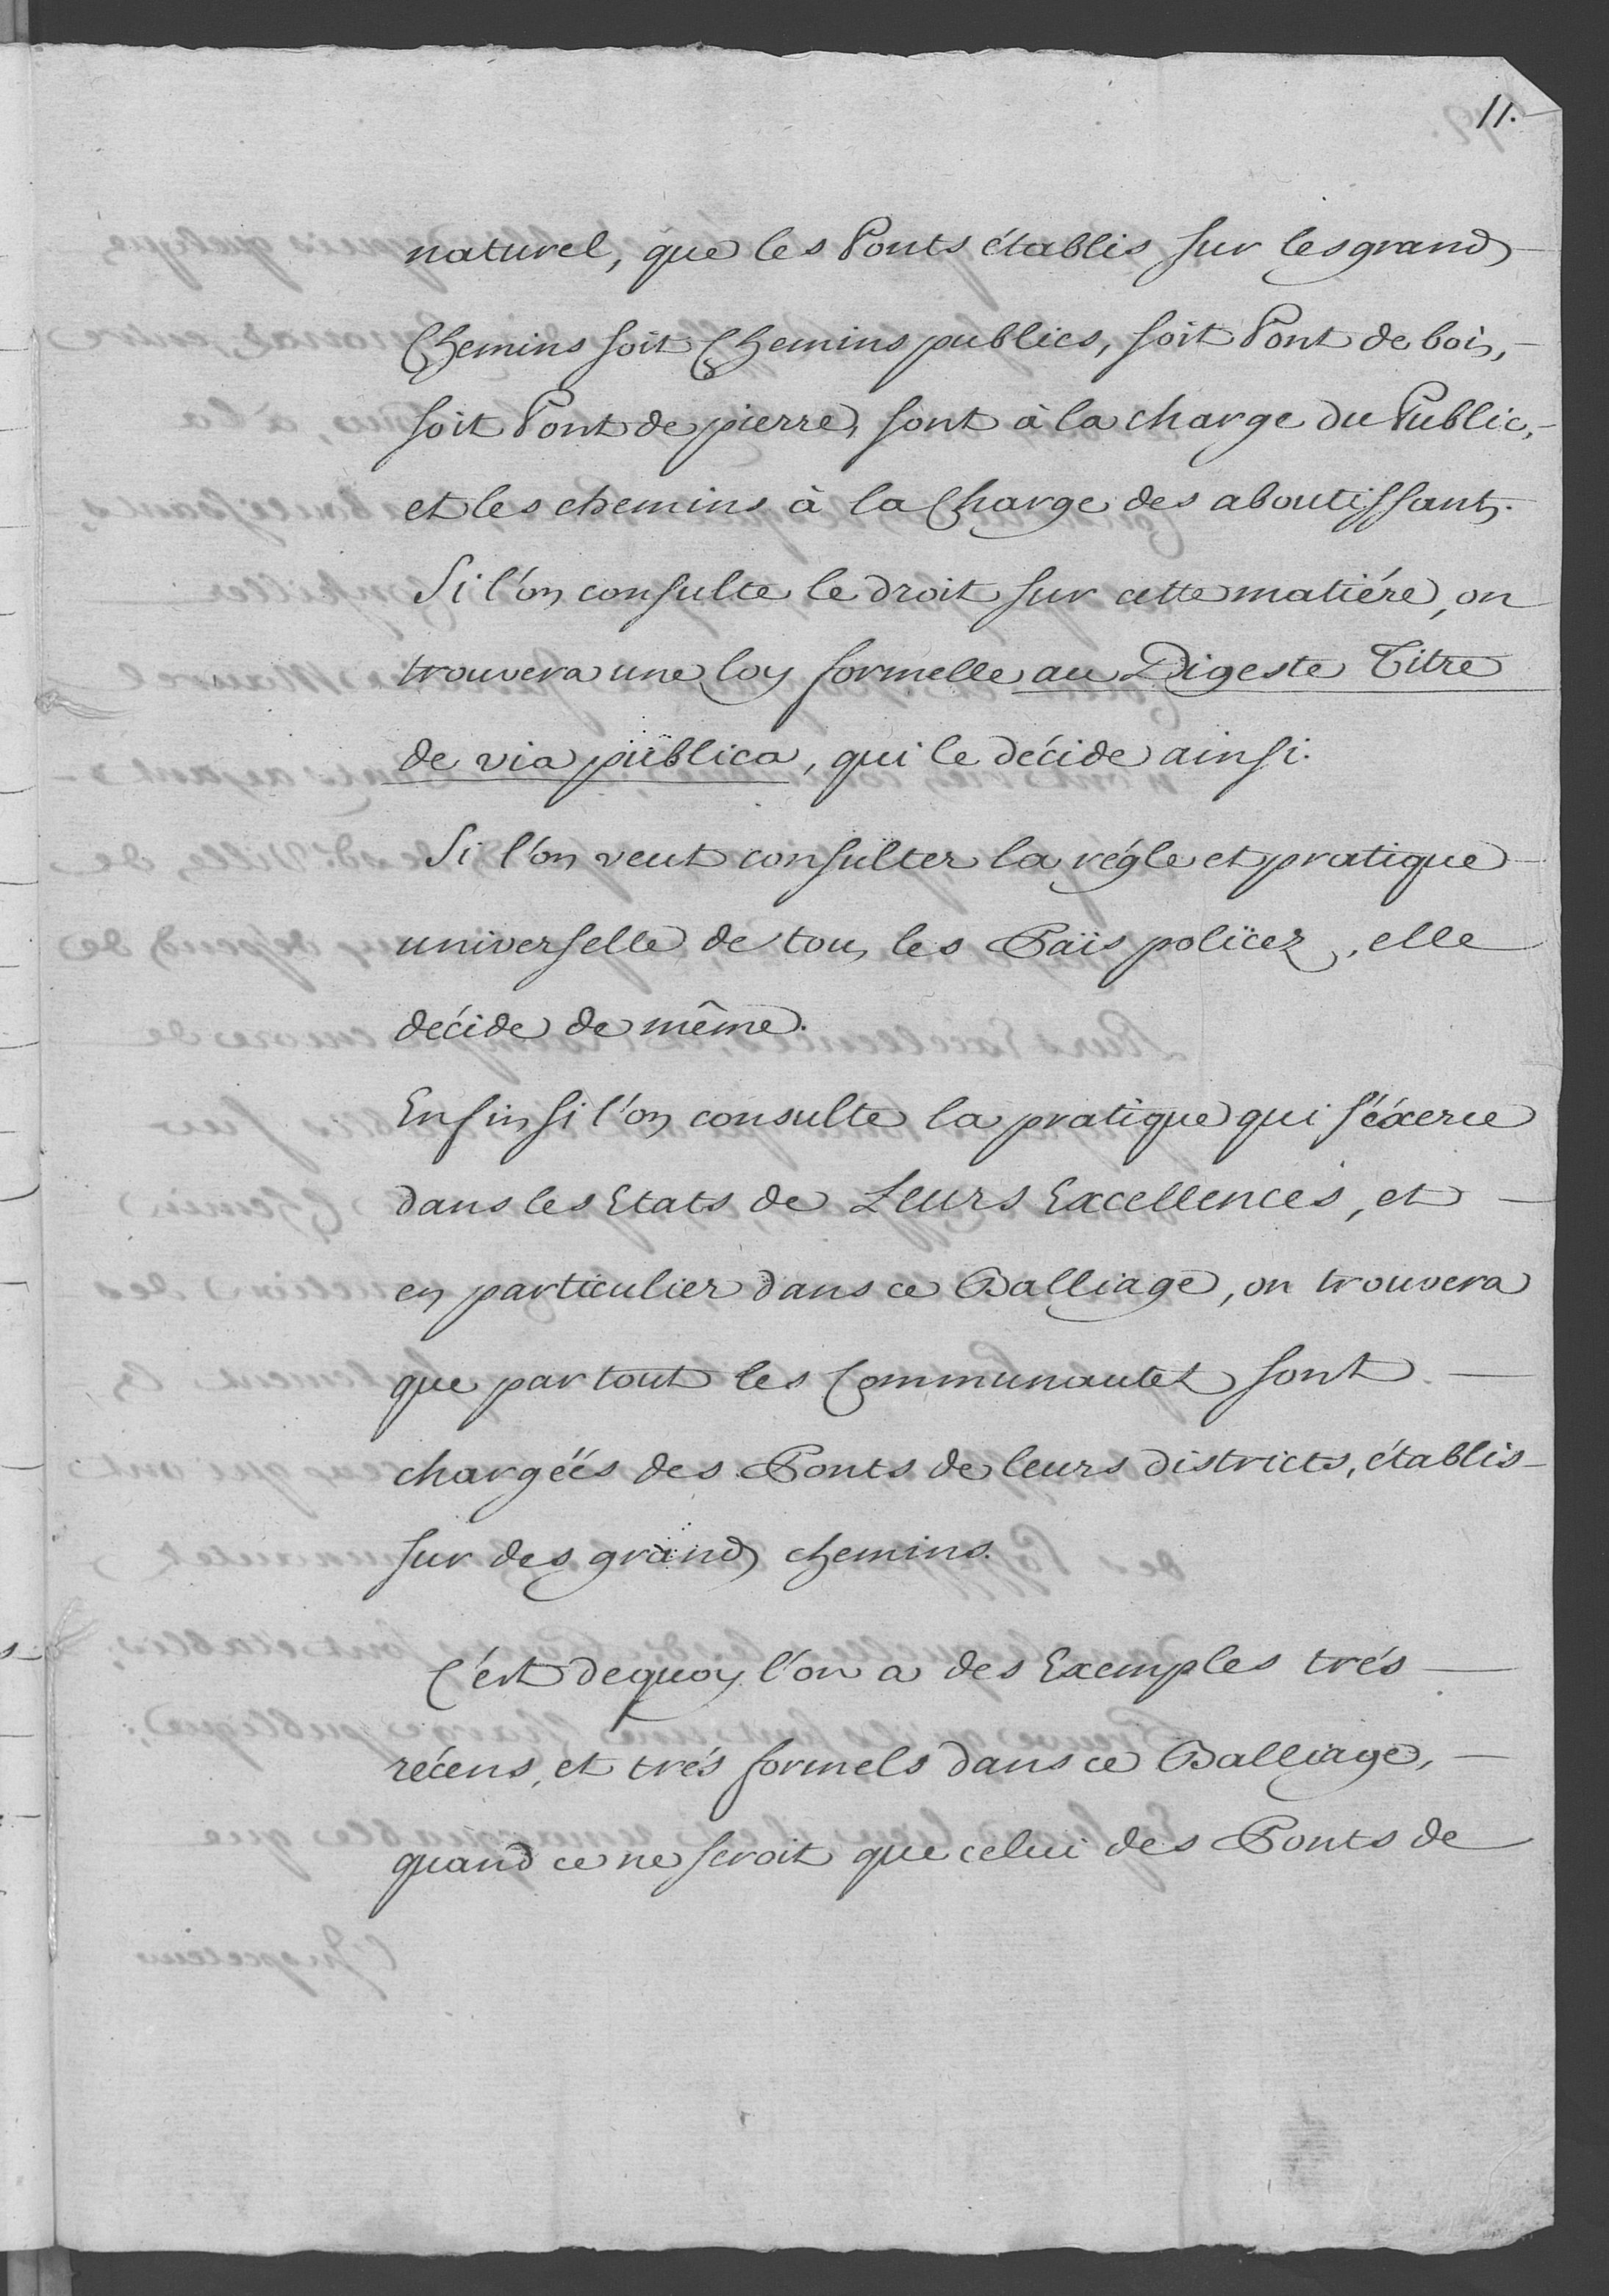 11.
naturel, que les Ponts établis sur les grands
Chemins soit Chemins publics, soit Pont de bois,
soit Pont de pierre, sont à la charge du Public,
et les chemins à la Charge des aboutissants.
Si l'on consulte le droit sur cette matiére, on
trouvera une loy formelle au Digeste Titre
de via publica, qui le décide ainsi.
Si l'on veut consulter la régle et pratique
universelle de tous les Païs policez, elle
décide de même.
Enfin si l'on consulte la pratique qui s'éxerce
dans les Etats de Leurs Excellences, et
en particulier dans ce Balliage, on trouvera
que par tout les Communautez sont
chargéés des Ponts de leurs districts, établis
sur des grands chemins.
C'est dequoy l'on a des Exemples trés
récens, et trés formels dans ce Balliage,
quand ce ne seroit que celui des Ponts de